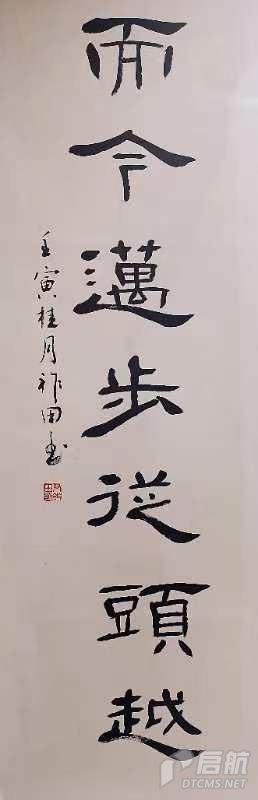 而今邁步從頭越
壬寅桂月祚田書
启航
DTCMS.NET